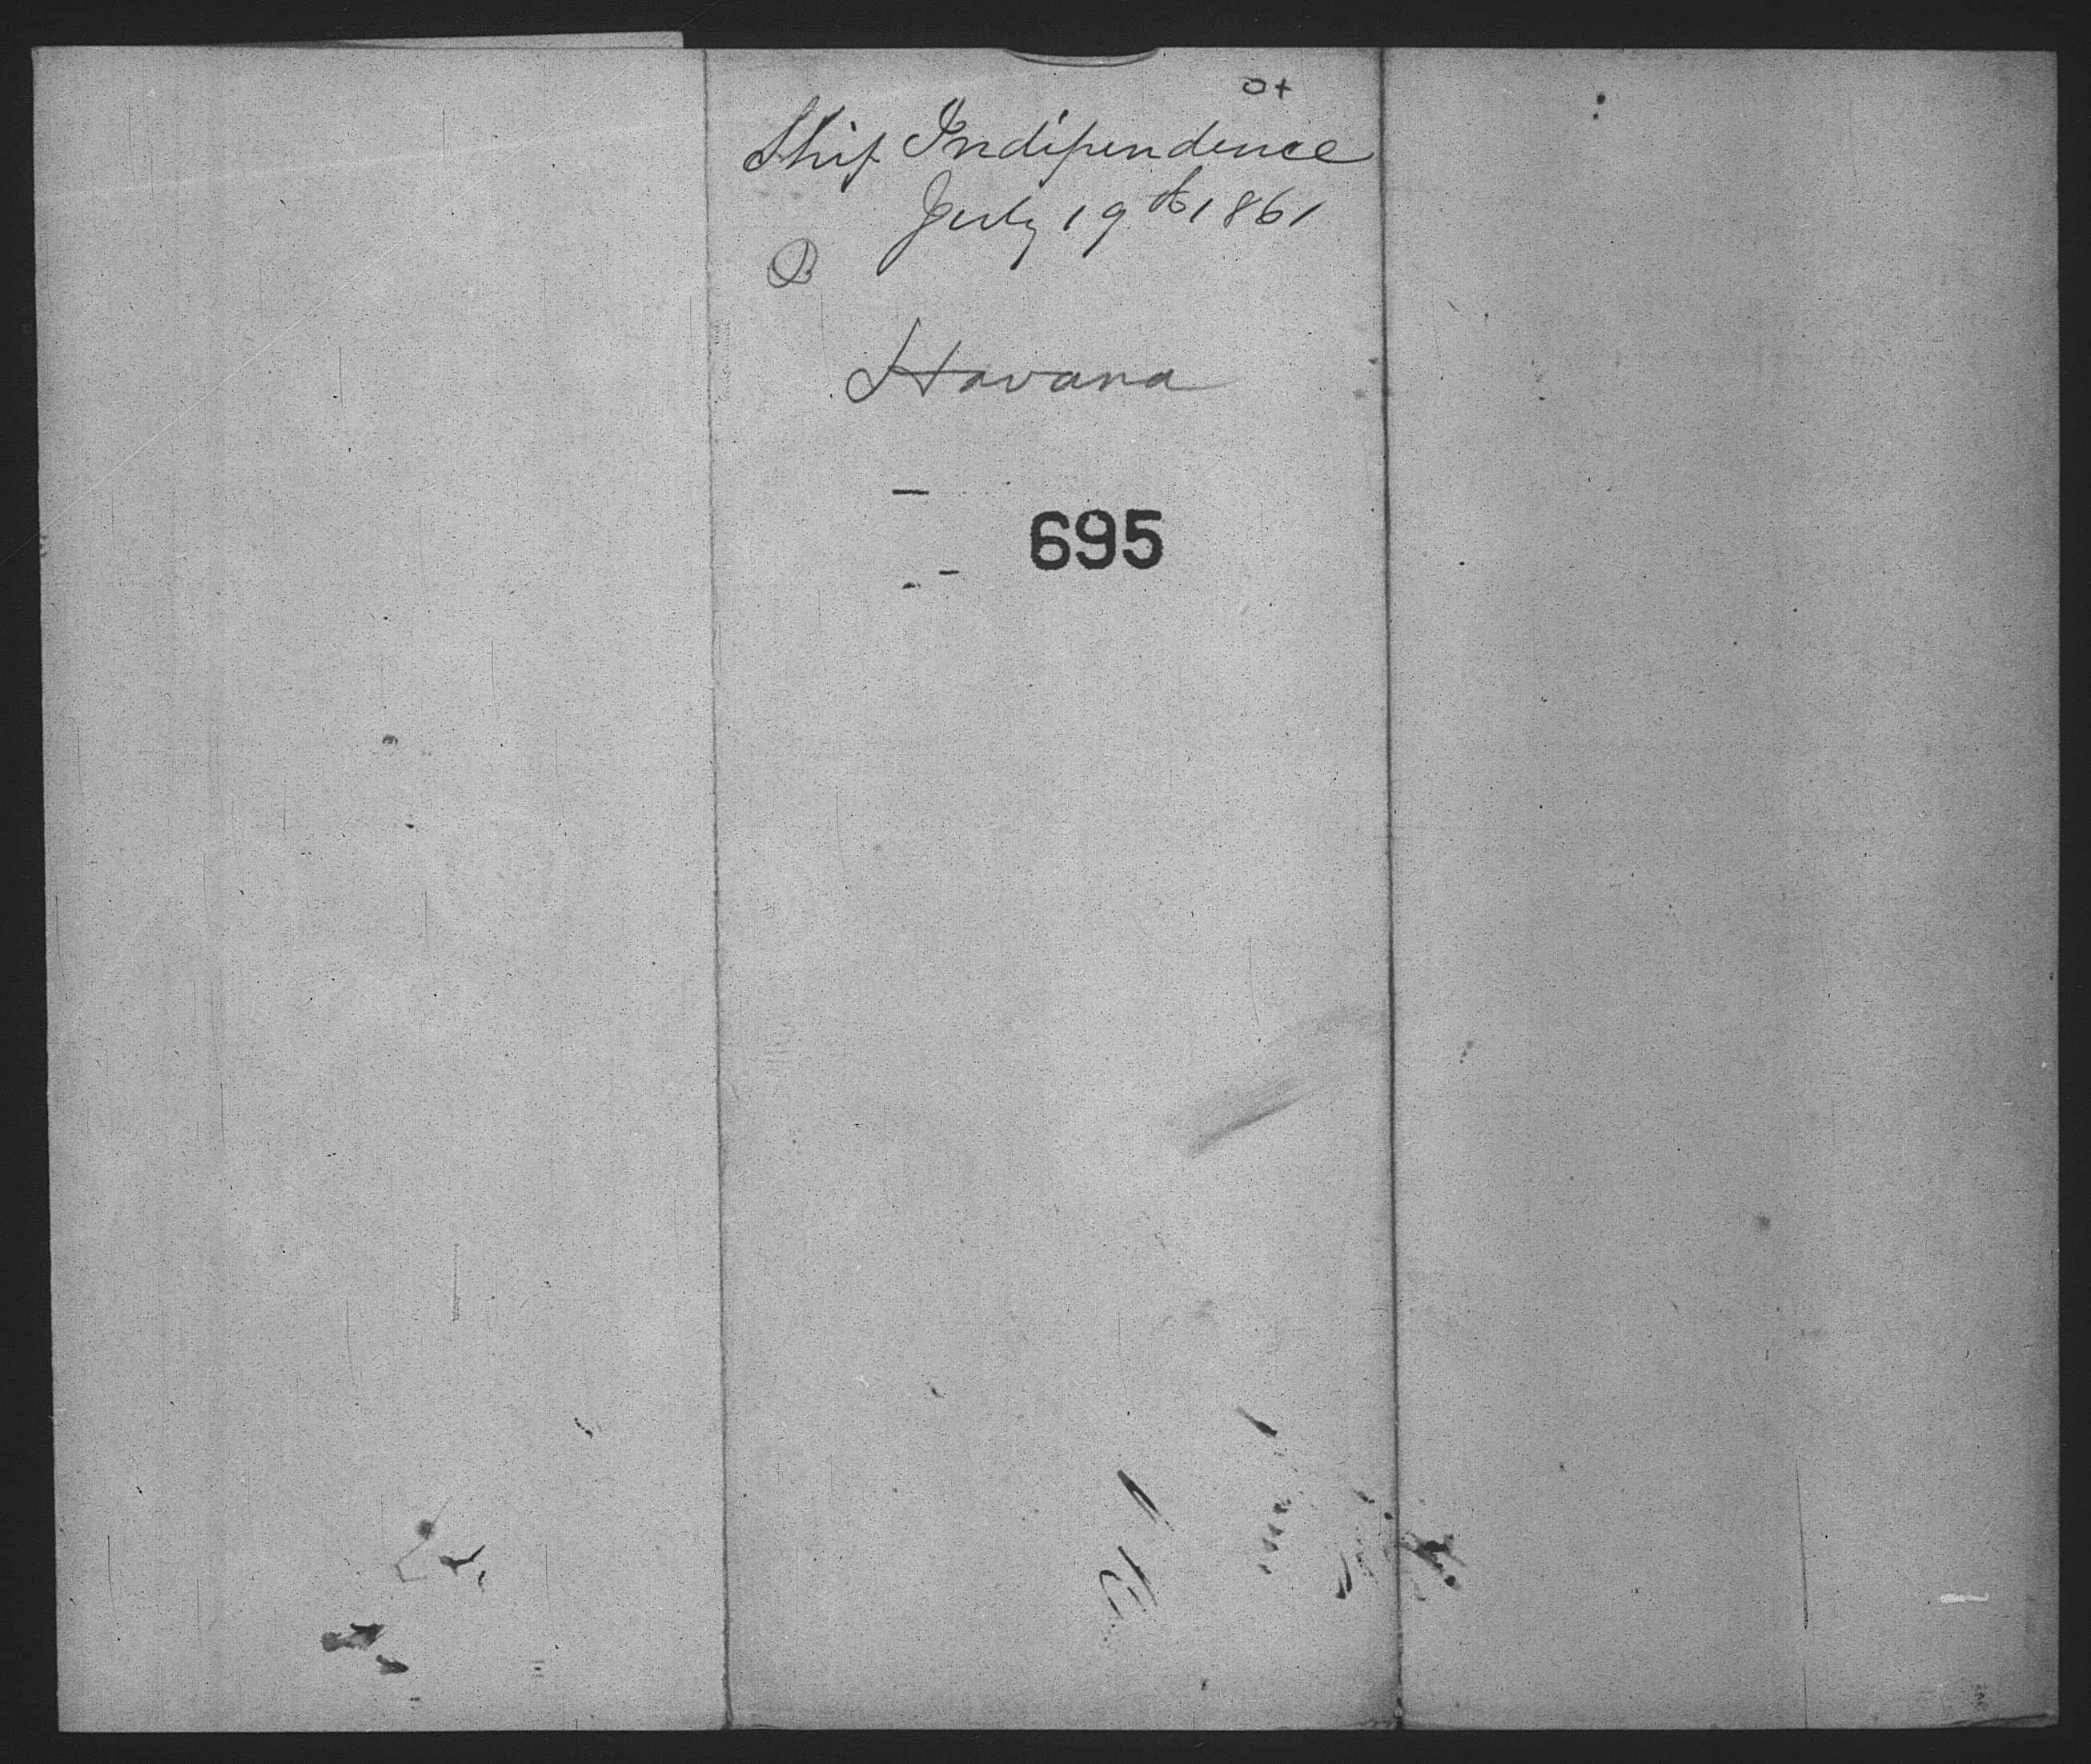 o+
Ship Indipendence
July 19th 1861
Havana
695